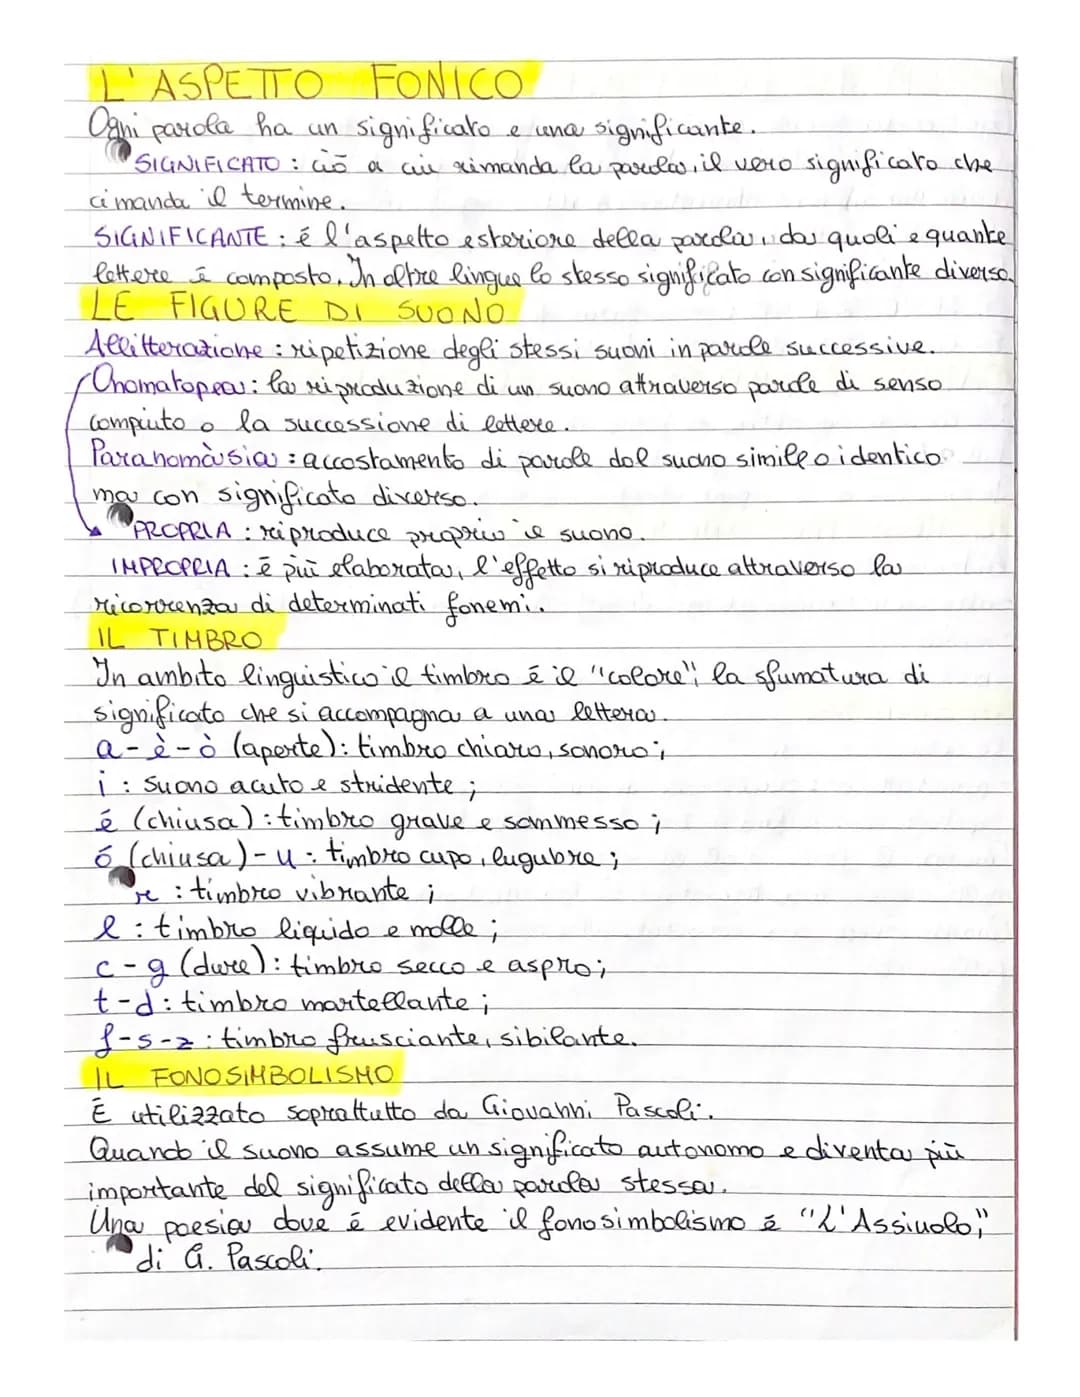 L'ASPETTO FONICO
Ogni parola ha un significato e una significante.
SIGNIFICATO : ciò a cui rimanda la parola, il vero significato che
ci manda il termine.
SIGNIFICANTE : é l'aspetto esteriore della parola, da quali e quante
lettere è composto. In altre lingue lo stesso significato con significante diverso.
LE FIGURE DI SUONO
Allitterazione : ripetizione degli stessi suoni in parole successive.
Onomatopea : la riproduzione di un suono attraverso parole di senso
compiuto o la successione di lettere.
Paranomàsia : accostamento di parole dal suono simile o identico
ma con significato diverso.
PROPRIA : riproduce proprio il suono.
IMPROPRIA : è più elaborata, l'effetto si riproduce attraverso la
ricorrenza di determinati fonemi.
IL TIMBRO
In ambito linguistico il timbro é il "colore", la sfumatura di
significato che si accompagna a una lettera.
a - è - ò (aperte) : timbro chiaro, sonoro ;
i : suono acuto e stridente ;
é (chiusa) : timbro grave e sommesso ;
ó (chiusa) - u : timbro cupo, lugubre ;
r : timbro vibrante ;
l : timbro liquido e molle ;
c - g (dure) : timbro secco e aspro ;
t - d : timbro martellante ;
f - s - z : timbro frusciante, sibilante.
IL FONOSIMBOLISMO
È utilizzato soprattutto da Giovanni Pascoli.
Quando il suono assume un significato autonomo e diventa più
importante del significato della parola stessa.
Una poesia dove é evidente il fonosimbolismo è "L'Assiuolo",
di G. Pascoli.